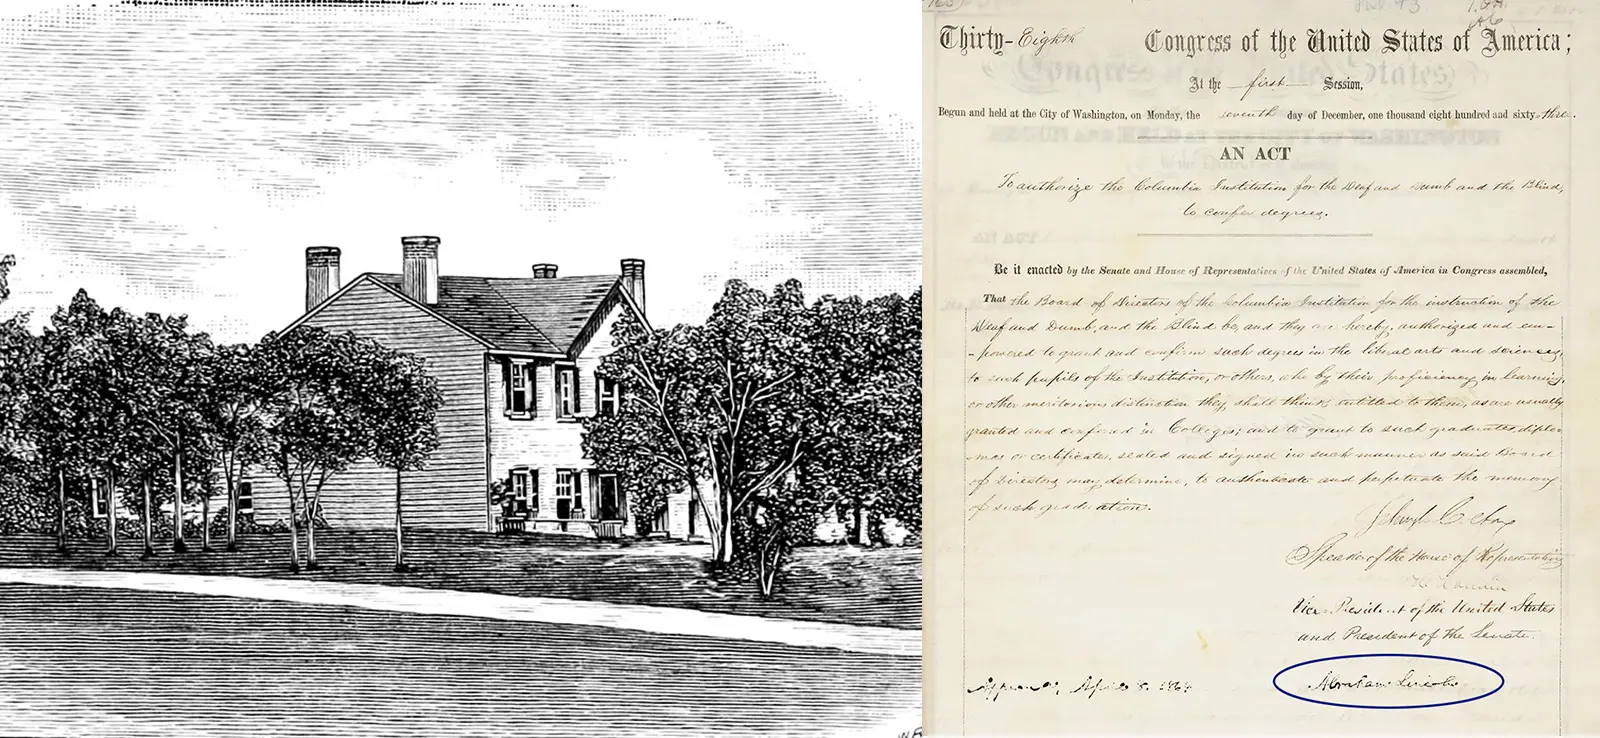 Thirty-Eighth Congress of the United States of America;
At the first Session,
Begun and held at the City of Washington, on Monday, the seventh day of December, one thousand eight hundred and sixty-three.
AN ACT
To authorize the Columbia Institution for the Deaf and Dumb and the Blind,
to confer degrees.
Be it enacted by the Senate and House of Representatives of the United States of America in Congress assembled,
That the Board of Directors of the Columbia Institution for the instruction of the
Deaf and Dumb, and the Blind be, and they are hereby, authorized and em-
-powered to grant and confirm such degrees in the liberal arts and sciences,
to such pupils of the Institution, or others, who by their proficiency in learning,
or other meritorious distinction they shall think entitled to them, as are usually
granted and conferred in Colleges; and to grant to such graduates, diplo-
-mas or certificates, sealed and signed in such manner as said Board
of Directors may determine, to authenticate and perpetuate the memory
of such graduation.
Schuyler Colfax
Speaker of the House of Representatives
H. Hamlin
Vice-President of the United States
and President of the Senate.
Approved, April 8. 1864 Abraham Lincoln